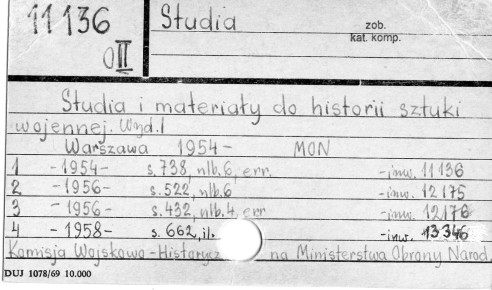 11136 Studia zob.
OII kat. komp.
Studia i materiały do historii sztuki
wojennej. Wyd. I
Warszawa 1954- MON
1 -1954- s. 738, nlb. 6, err. -inw. 11136
2 -1956- s. 522, nlb. 6 -inw. 12175
3 -1956- s. 432, nlb. 4, err -inw. 12176
4 -1958- s. 662, il. -inw. 13346
Komisja Wojskowo-Historycz na Ministerstwa Obrony Narod.
DUJ 1078/69 10.000